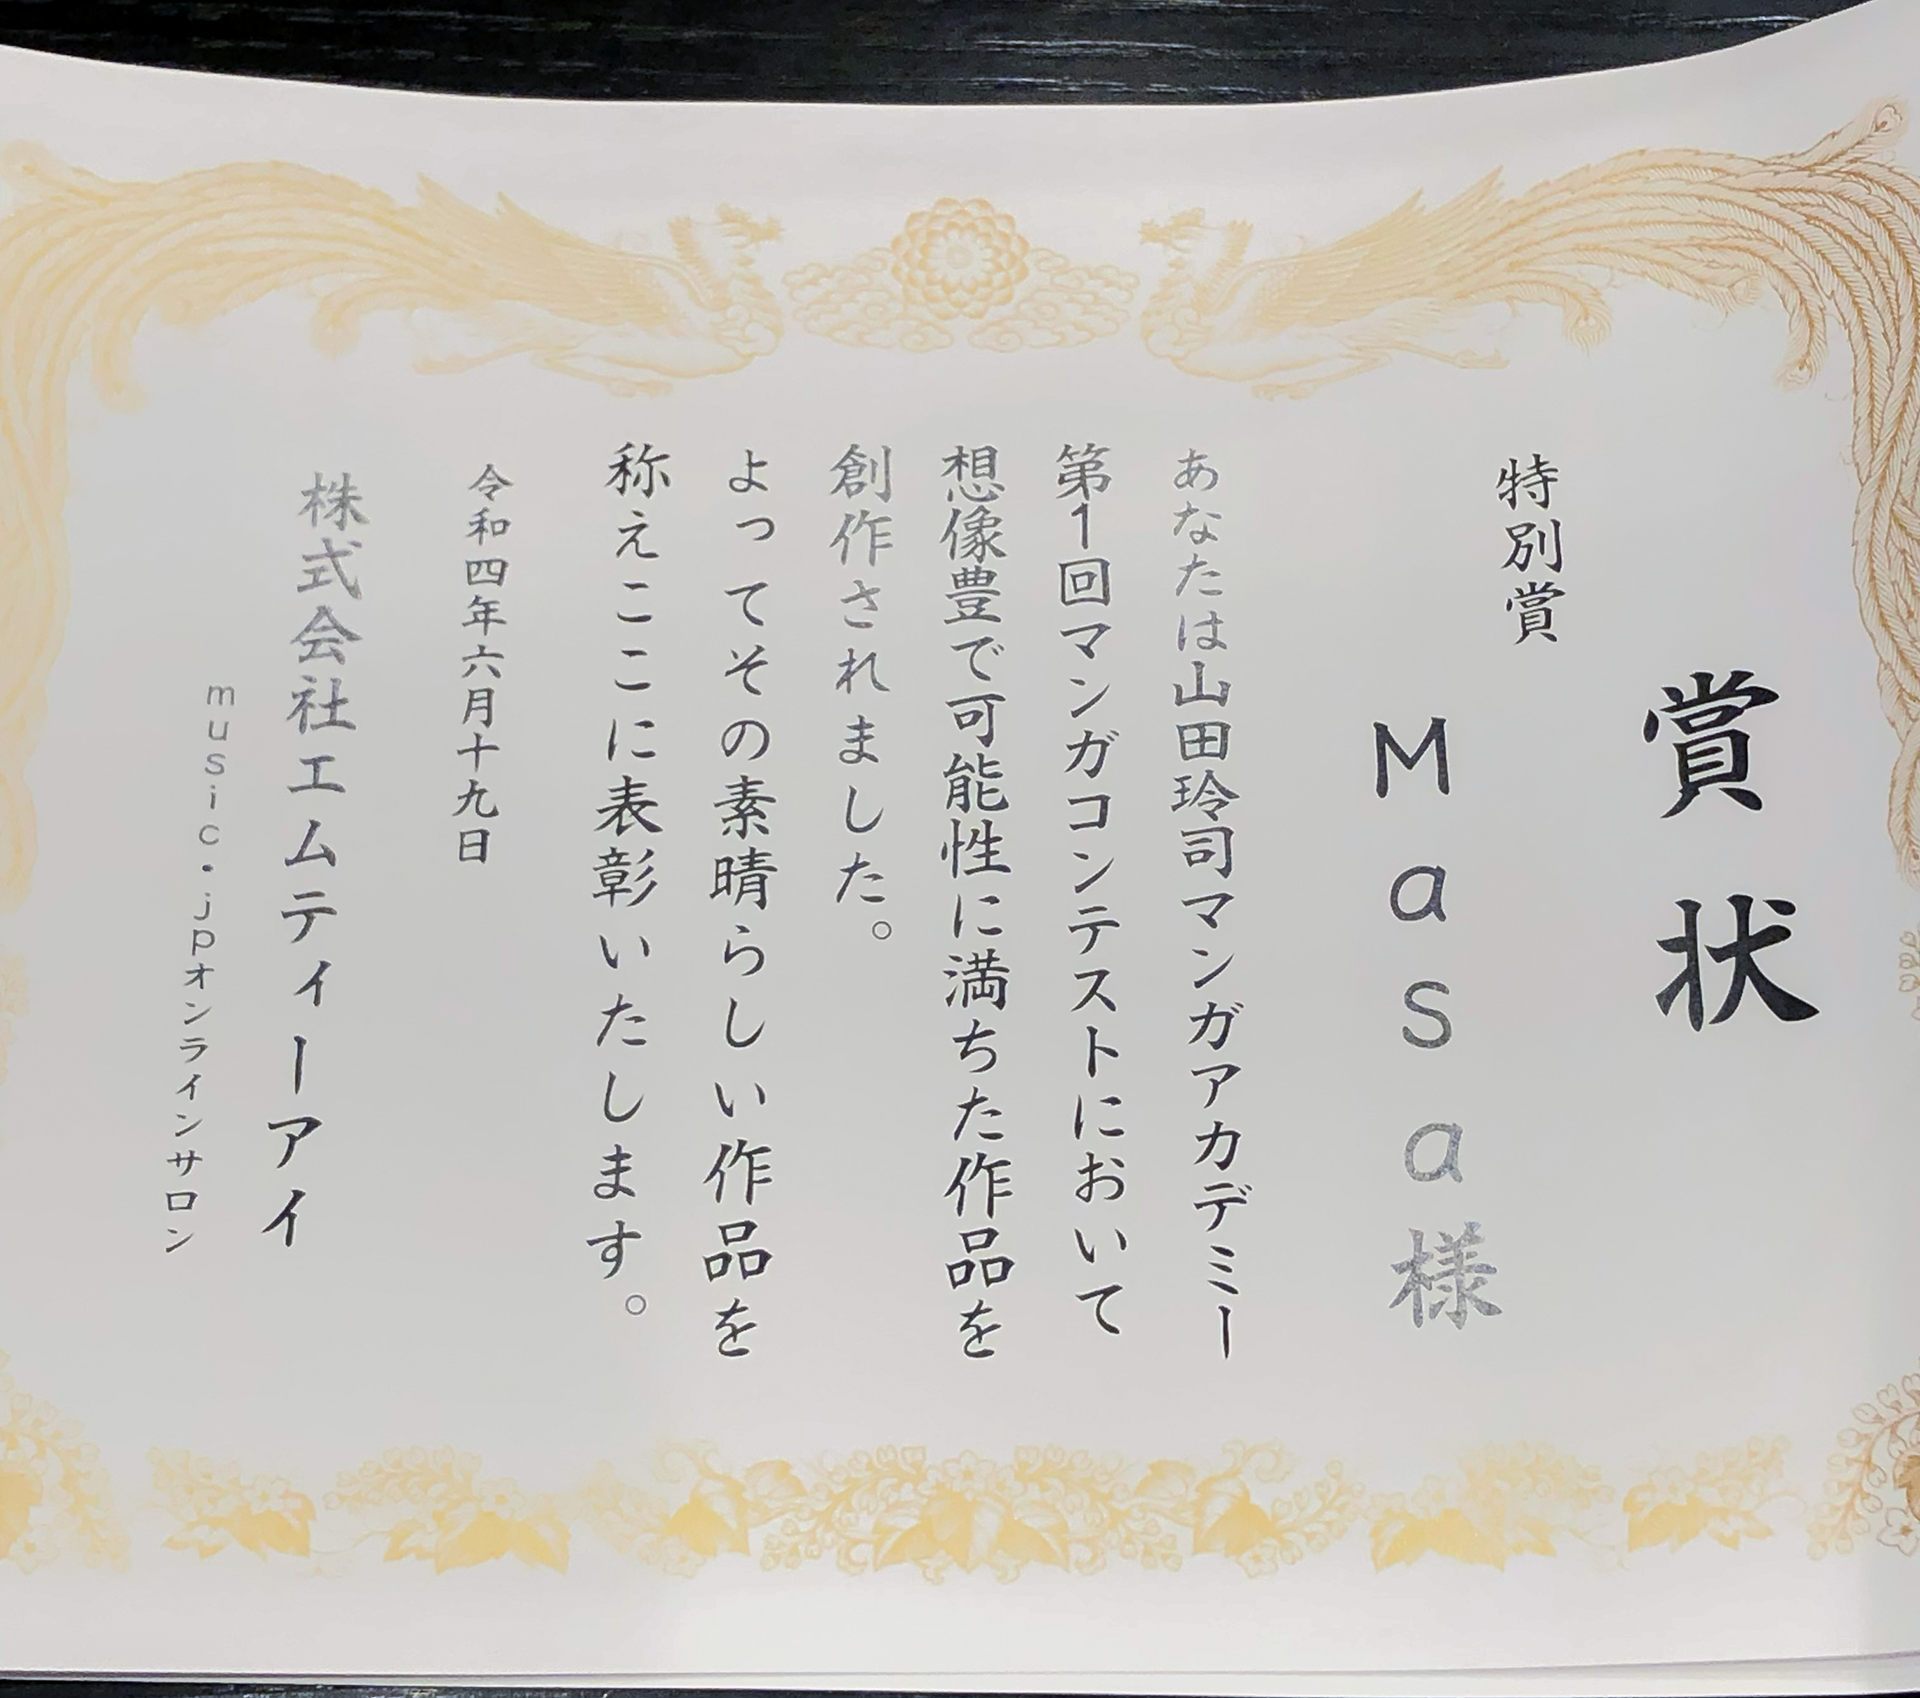 賞状
特別賞
Masa様
あなたは山田玲司マンガアカデミー
第1回マンガコンテストにおいて
想像豊で可能性に満ちた作品を
創作されました。
よってその素晴らしい作品を
称えここに表彰いたします。
令和四年六月十九日
株式会社エムティーアイ
music.jpオンラインサロン